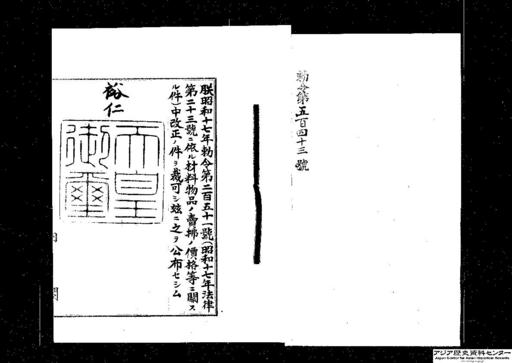 勅令第五百四十三號
朕昭和十七年勅令第二百五十一號(昭和十七年法律
第二十三號ニ依ル材料物品ノ賣拂ノ價格等ニ關ス
ル件)中改正ノ件ヲ裁可シ玆ニ之ヲ公布セシム
裕仁
天皇
御璽
アジア歴史資料センター
Japan Center for Asian Historical Records